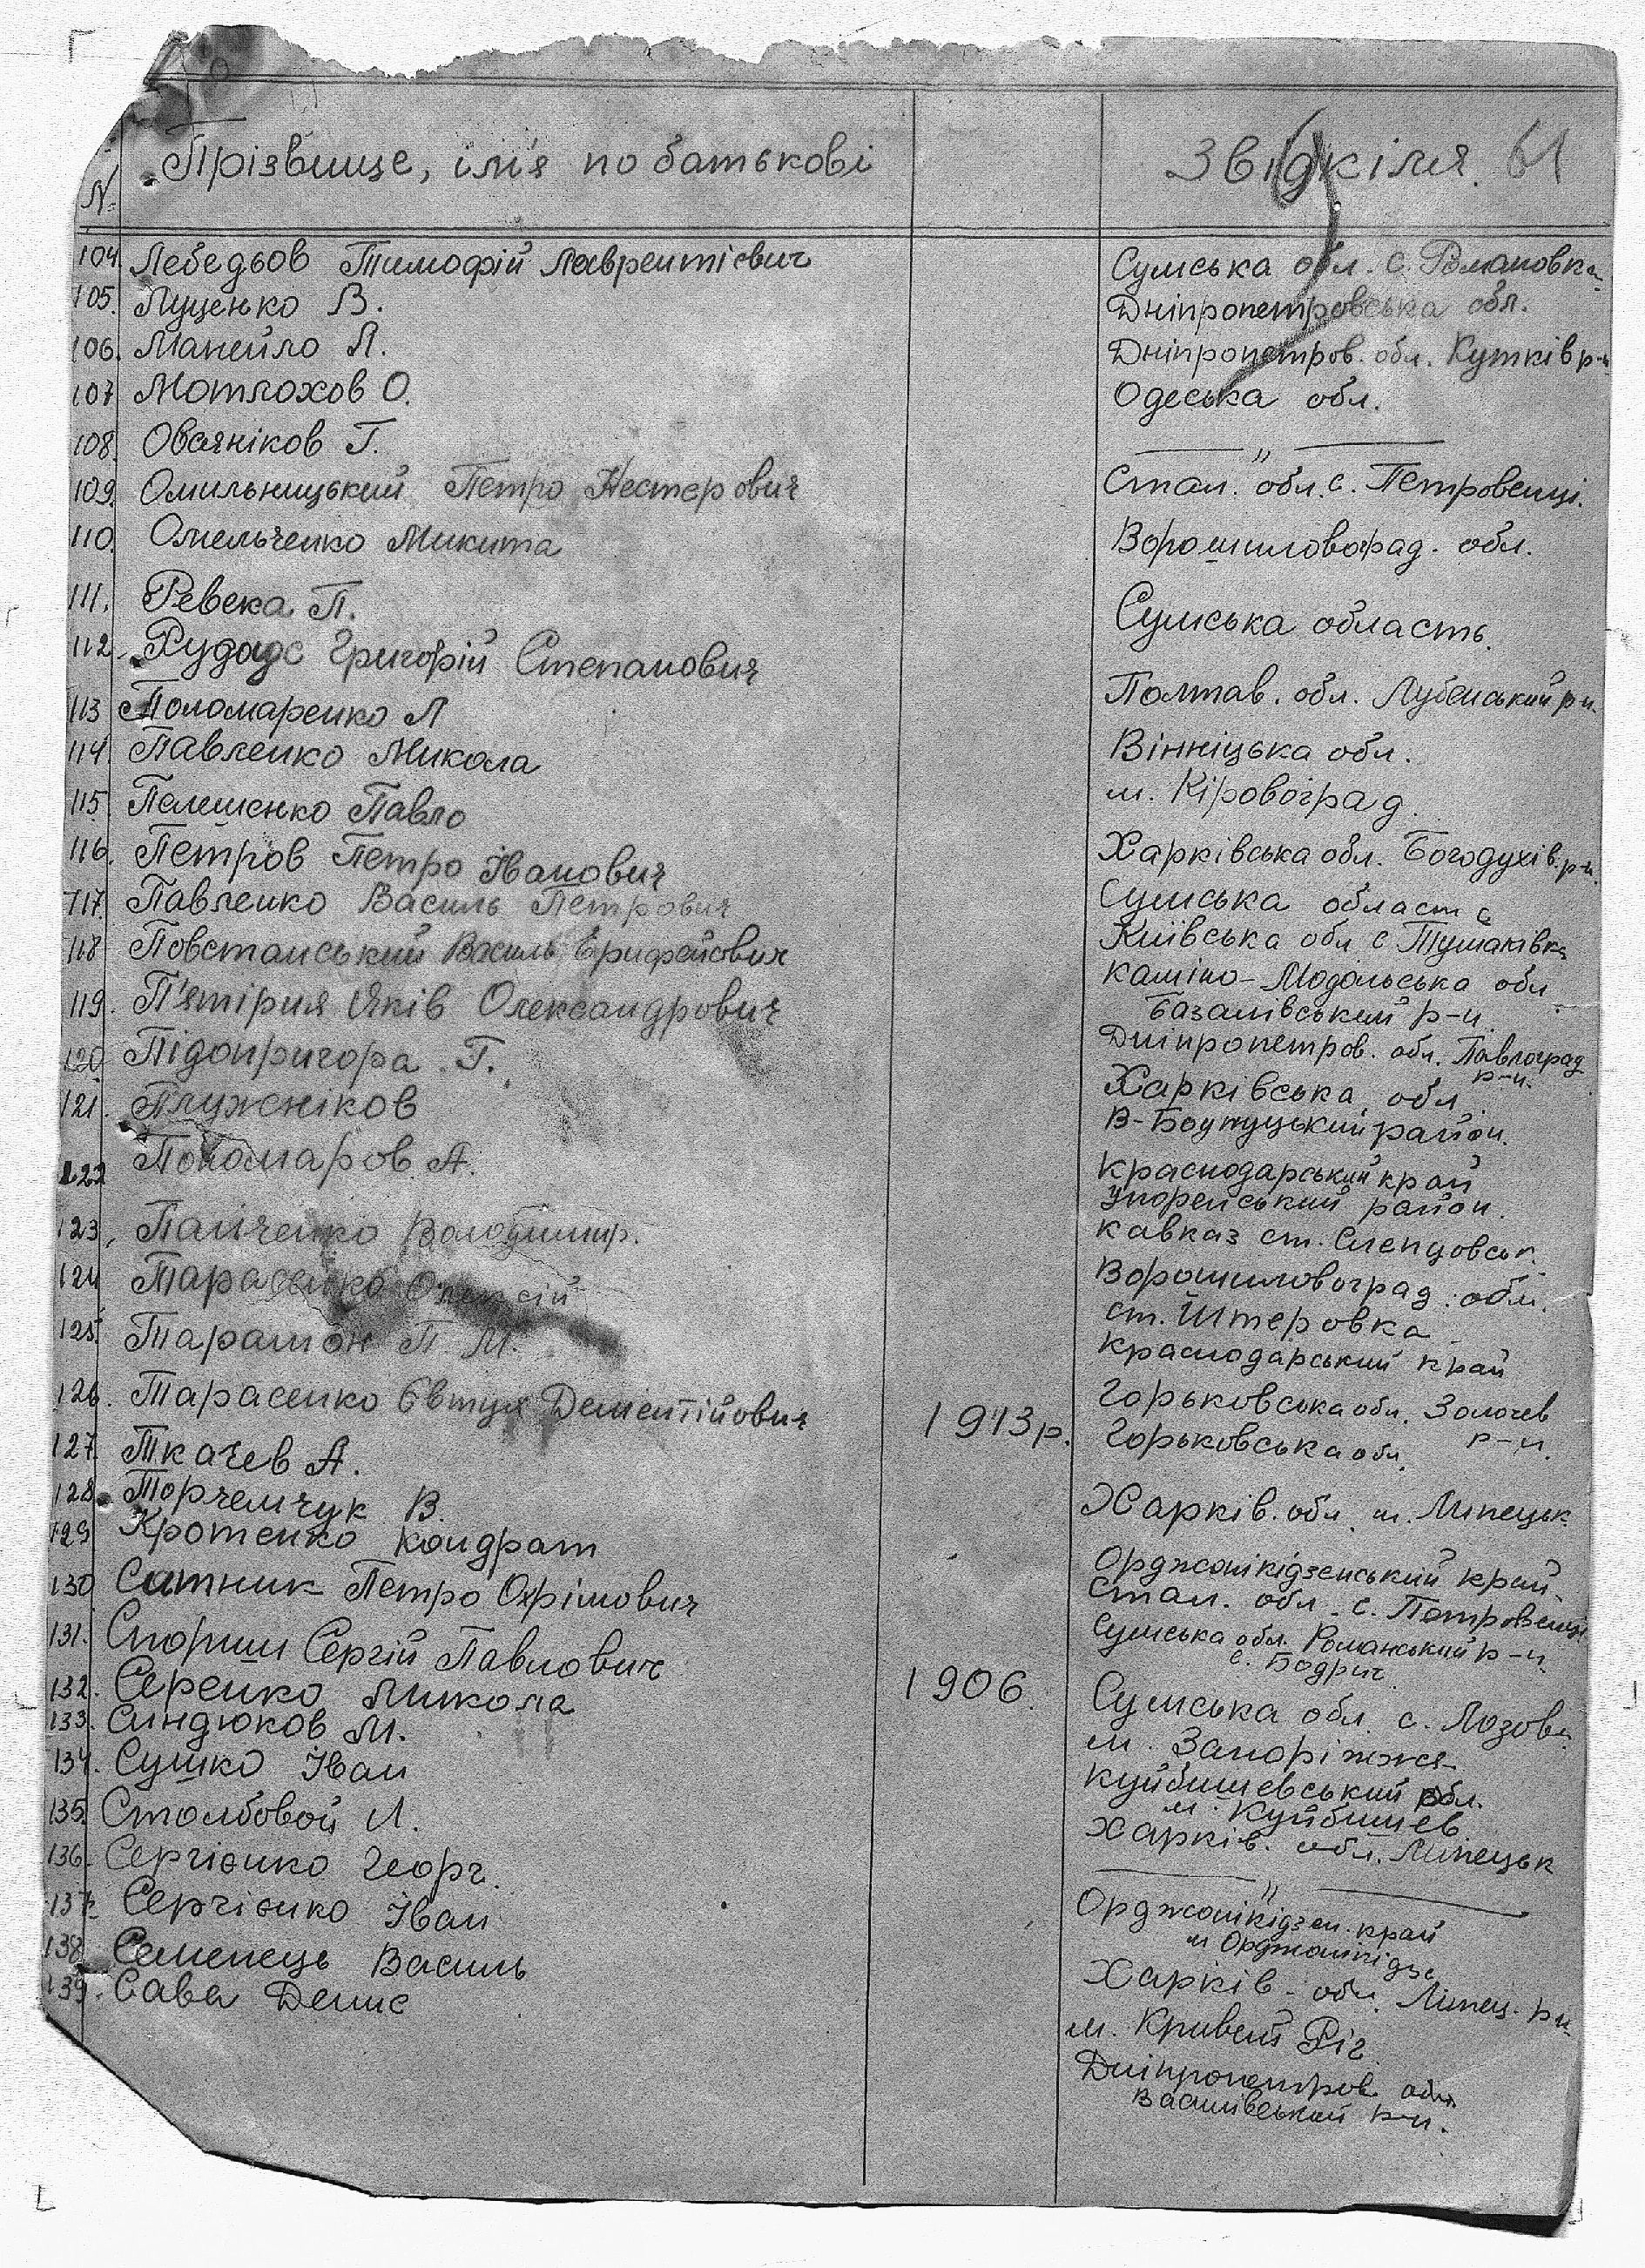 № Прізвище, ім'я по батькові Звідкіля. 61
104. Лебедьов Тимофій Лаврентієвич Сумська обл. с. Романовка
105. Луценко В. Дніпропетровська обл.
106. Манейло Л. Дніпропетров. обл. Кутків р-н
107 Мотлохов О. Одеська обл.
108. Овсяніков Г. — " —
109. Омильницький Петро Нестерович Стал. обл. с. Петровенці.
110. Омельченко Микита Ворошиловоград. обл.
111. Ревека П. Сумська область.
112. Григорій Степанович Полтав. обл. Лубенський р-н.
113 Пономаренко Л Вінніцька обл.
114. Павленко Микола м. Кіровоград.
115. Пелешенко Павло Харківська обл. Богодухів. р-н.
116. Петров Петро Іванович Сумська област
117. Павленко Василь Петрович Київська обл с Тумаківка
118 Повстанський Василь Каміно-Модольська обл
119. П'ятірня Яків Олександрович Базалівський р-н.
120. Підопригора Г. Дніпропетров. обл. Павлоград р-н.
121. Плужсніков Харківська обл.
В- район.
122 Пономаров А. Краснодарський край
район.
123. Панченко Володимир. Кавказ ст. Слепцовськ.
124 Тарасенко Олексій Ворошиловоград. обл.
ст. Штеровка
125. П. М. Краснодарський край
126. Тарасенко Євтух Дементійович 1913р. Горьковська обл. Золочев р-н.
127. Ткачев А. Горьковська обл.
128. Торчемчук В. Харків. обл. м. Липецьк.
129 Кротенко Кондрат Орджонікідзенський край.
130 Сатник Петро Охрімович Стал. обл. с. Петровенці
131. Споршн Сергій Павлович Сумська обл. Романський р-н.
с. Бодрич
132. Серенко Микола 1906. Сумська обл. с. Лозова
133. Синдюков М. м. Запоріжжя
134. Сушко Іван Куйбишевський обл.
м. Куйбишев
135. Столбовой І. Харків. обл. Липецьк
136. Сергієнко Георг. — " —
137. Сергієнко Іван Орджонікідзен. край
м Орджонікідзе
138. Семенець Василь Харків. обл. Липец. р-н.
139. Сава Денис м. Кривий Ріг
Дніпропетров. обл.
Васиківський р-н.